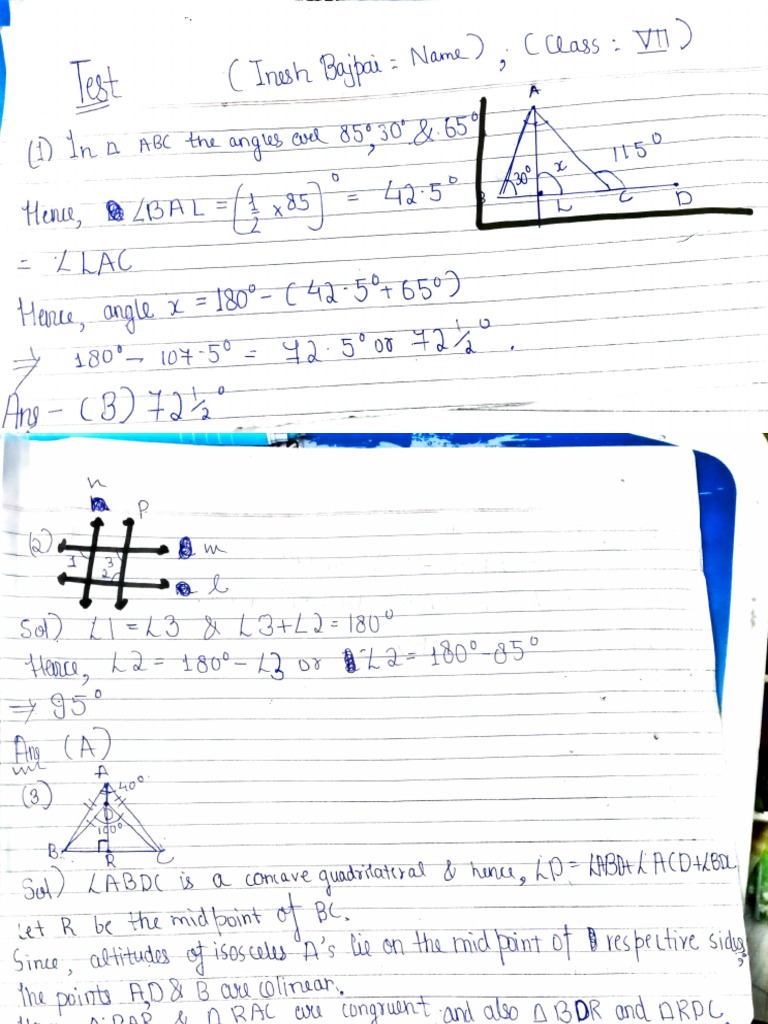 Test (Inesh Bajpai = Name), (Class : VII)
(1) In Δ ABC the angles are 85°, 30° & 65°
A
30° x 115°
B L C D
Hence, ∠BAL = (1/2 × 85)° = 42.5°
= ∠LAC
Hence, angle x = 180° - (42.5° + 65°)
⇒ 180° - 107.5° = 72.5° or 72 1/2°.
Ans - (B) 72 1/2°
n p
(2) m
1 3
2 l
Sol) ∠1 = ∠3 & ∠3 + ∠2 = 180°
Hence, ∠2 = 180° - ∠3 or ∠2 = 180° - 85°
⇒ 95°
Ans (A)
A
(3) 40°
D
100°
B R C
Sol) ∠ABDC is a concave quadrilateral & hence, ∠D = ∠ABD + ∠ACD + ∠BDC
Let R be the midpoint of BC.
Since, altitudes of isosceles Δ's lie on the midpoint of respective sides,
the points A, D & B are colinear.
RAC are congruent and also Δ BDR and ΔRDC.